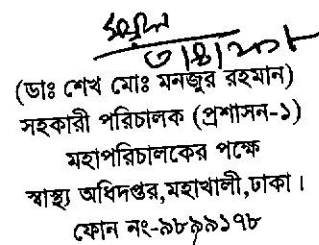 (ডাঃ শেখ মোঃ মনজুর রহমান)
সহকারী পরিচালক (প্রশাসন-১)
মহাপরিচালকের পক্ষে
স্বাস্থ্য অধিদপ্তর,মহাখালী,ঢাকা।
ফোন নং-৯৮৯৯১৭৮